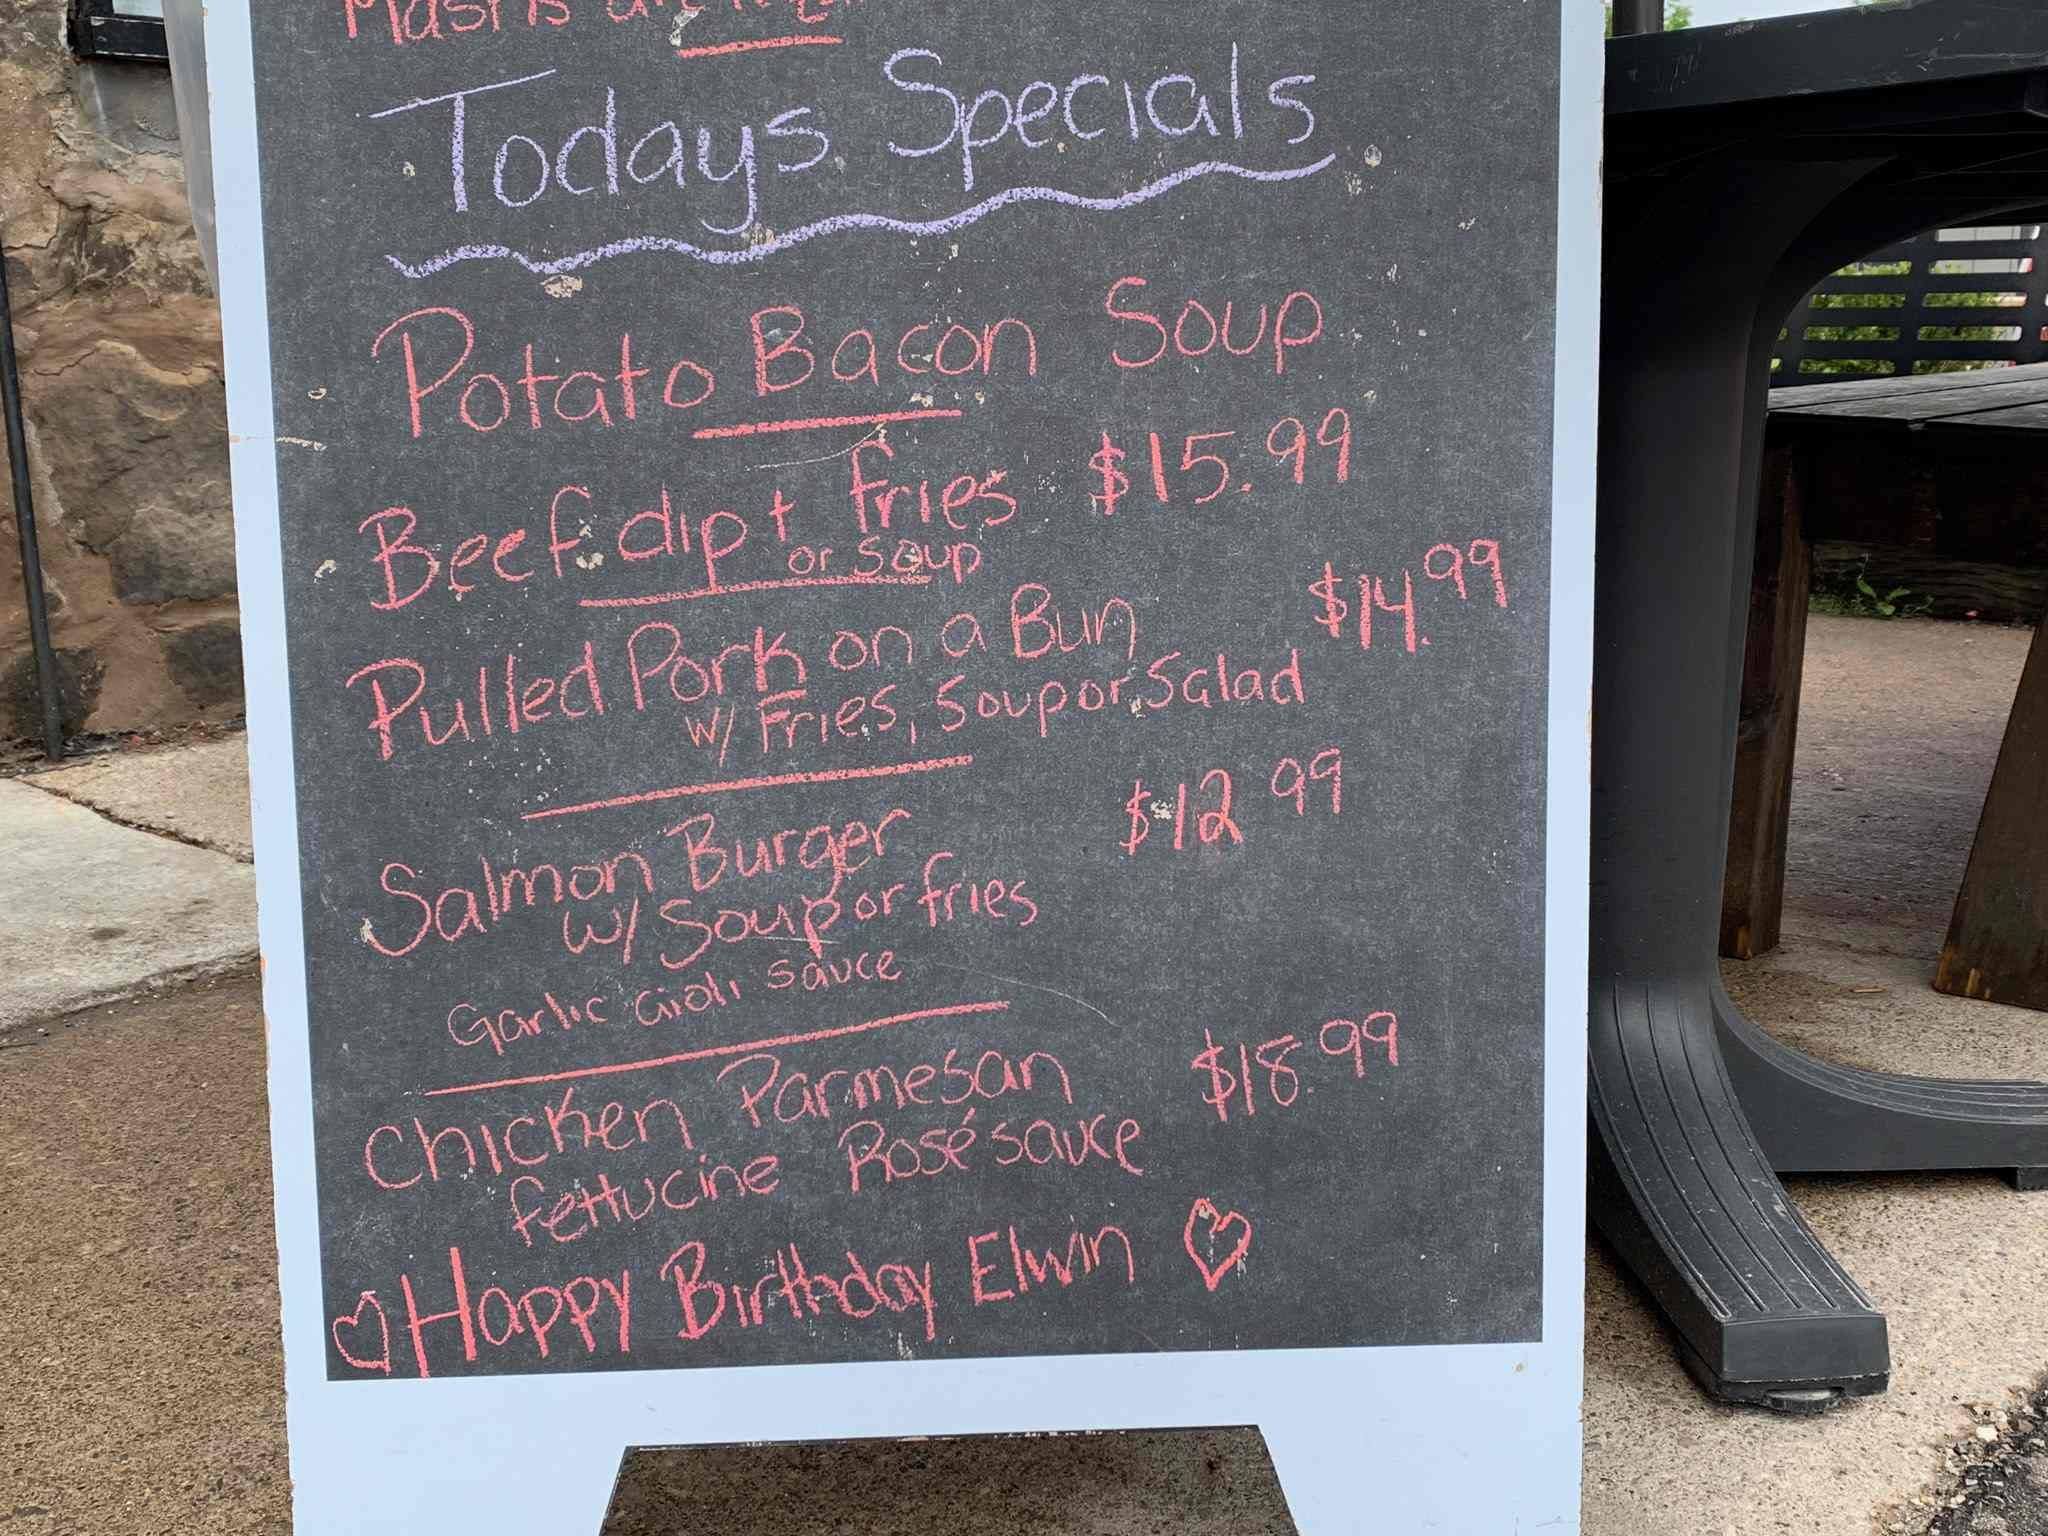 Masks are
Todays Specials
Potato Bacon Soup
Beef dip + fries $15.99
or soup
Pulled Pork on a Bun $14.99
w/ Fries, soup or Salad
Salmon Burger $12 99
w/ Soup or fries
Garlic aioli sauce
Chicken Parmesan $18.99
fettucine Rosé sauce
Happy Birthday Elwin